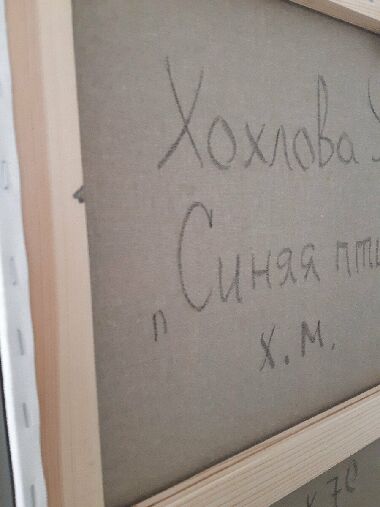 Хохлова
"Синяя пти
х.м.
х 70